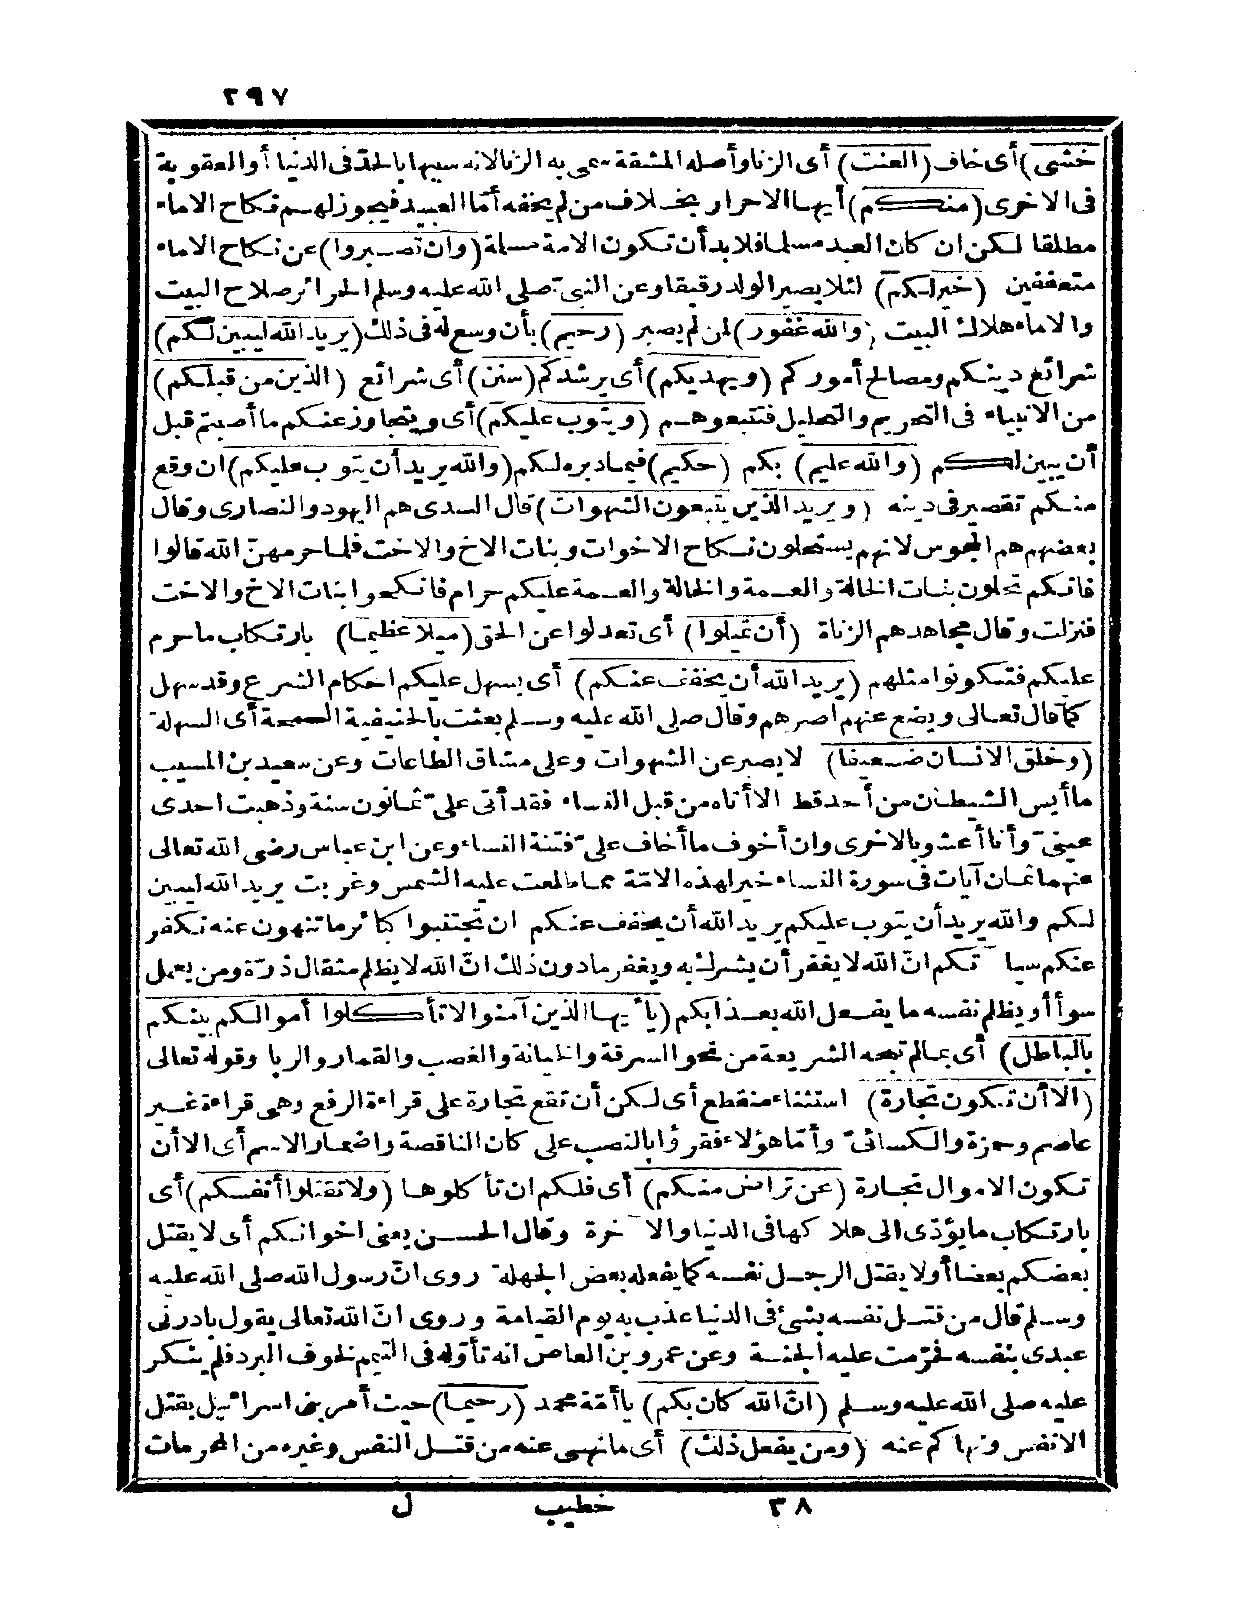 ٢٩٧
خشى) أى خاف (العنت) أى الزنا وأصله المشقة سمى به الزنا لانه سببها بالحد فى الدنيا أو العقوبة
فى الاخرى (منكم) أيها الاحرار بخلاف من لم يخفه أمّا العبيد فيجوز لهم نكاح الاماء
مطلقا لكن ان كان العبد مسلما فلابد أن تكون الامة مسلمة (وان تصبروا) عن نكاح الاماء
متعففين (خير لكم) لئلا يصير الولد رقيقا وعن النبىّ صلى الله عليه وسلم الحرائر صلاح البيت
والاماء هلاك البيت (والله غفور) لمن لم يصبر (رحيم) بأن وسع له فى ذلك (يريد الله ليبين لكم)
شرائع دينكم ومصالح أموركم (ويهديكم) أى يرشدكم (سنن) أى شرائع (الذين من قبلكم)
من الانبياء فى التحريم والتحليل فتتبعوهم (ويتوب عليكم) أى ويتجاوز عنكم ما أصبتم قبل
أن يبين لكم (والله عليم) بكم (حكيم) فيما دبره لكم (والله يريد أن يتوب عليكم) ان وقع
منكم تقصير فى دينه (ويريد الذين يتبعون الشهوات) قال السدى هم اليهود والنصارى وقال
بعضهم هم المجوس لانهم يستحلون نكاح الاخوات وبنات الاخ والاخت فلما حرمهنّ الله قالوا
فانكم تحلون بنات الخالة والعمة والخالة والعمة عليكم حرام فانكحوا بنات الاخ والاخت
فنزلت وقال مجاهد هم الزناة (أن تميلوا) أى تعدلوا عن الحق (ميلا عظيما) بارتكاب ما حرم
عليكم فتكونوا مثلهم (يريد الله أن يخفف عنكم) أى يسهل عليكم احكام الشرع وقد سهل
كما قال تعالى ويضع عنهم اصرهم وقال صلى الله عليه وسلم بعثت بالحنيفية السمحة أى السهلة
(وخلق الانسان ضعيفا) لا يصبر عن الشهوات وعلى مشاق الطاعات وعن سعيد بن المسيب
ما أيس الشيطان من أحد قط الا أتاه من قبل النساء فقد أتى علىّ ثمانون سنة وذهبت احدى
عينىّ وأنا أعشو بالاخرى وان أخوف ما أخاف علىّ فتنة النساء وعن ابن عباس رضى الله تعالى
عنهما ثمان آيات فى سورة النساء خير لهذه الامّة مما طلعت عليه الشمس وغربت يريد الله ليبين
لكم والله يريد أن يتوب عليكم يريد الله أن يخفف عنكم ان تجتنبوا كبائر ما تنهون عنه نكفر
عنكم سيآتكم انّ الله لا يغفر أن يشرك به ويغفر ما دون ذلك انّ الله لا يظلم مثقال ذرّة ومن يعمل
سوأ أو يظلم نفسه ما يفعل الله بعذابكم (يا أيها الذين آمنوا لا تأكلوا أموالكم بينكم
بالباطل) أى بما لم تبحه الشريعة من نحو السرقة والخيانة والغصب والقمار والربا وقوله تعالى
(الا أن تكون تجارة) استثناء منقطع أى لكن أن تقع تجارة على قراءة الرفع وهى قراءة غير
عاصم وحمزة والكسائىّ وأمّا هؤلاء فقرؤا بالنصب على كان الناقصة واضمار الاسم أى الا أن
تكون الاموال تجارة (عن تراض منكم) أى فلكم ان تأكلوها (ولا تقتلوا أنفسكم) أى
بارتكاب ما يؤدّى الى هلاكها فى الدنيا والآخرة وقال الحسن يعنى اخوانكم أى لا يقتل
بعضكم بعضا أو لا يقتل الرجل نفسه كما يفعله بعض الجهلة روى انّ رسول الله صلى الله عليه
وسلم قال من قتل نفسه بشئ فى الدنيا عذب به يوم القيامة وروى انّ الله تعالى يقول بادرنى
عبدى بنفسه فحرّمت عليه الجنة وعن عمرو بن العاص انه تأوّله فى التيمم لخوف البرد فلم ينكر
عليه صلى الله عليه وسلم (انّ الله كان بكم) يا أمّة محمد (رحيما) حيث أمر بنى اسرائيل بقتل
الانفس ونهاكم عنه (ومن يفعل ذلك) أى ما نهى عنه من قتل النفس وغيره من المحرمات
٣٨ خطيب ل